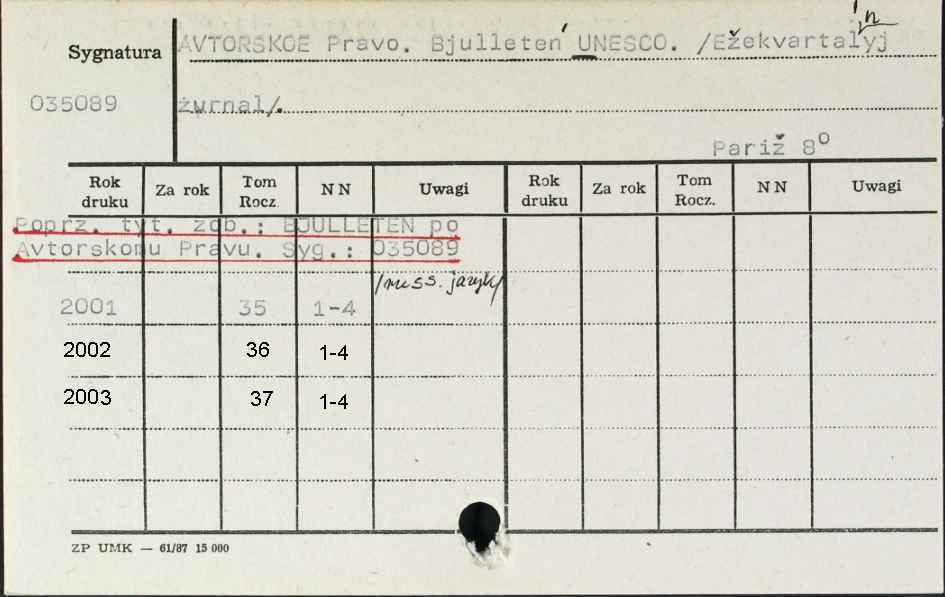 Sygnatura AVTORSKOE Pravo. Bjulleteń UNESCO. /Ežekvartal'nyj
035089 žurnal/.
Pariž 8º
Rok druku Za rok Tom Rocz. NN Uwagi Rok druku Za rok Tom Rocz. NN Uwagi
Poprz. tyt. zob.: BJULLETEN po
Avtorskomu Pravu. Syg.: 035089
/russ. jazyk/
2001 35 1-4
2002 36 1-4
2003 37 1-4
ZP UMK — 61/87 15 000